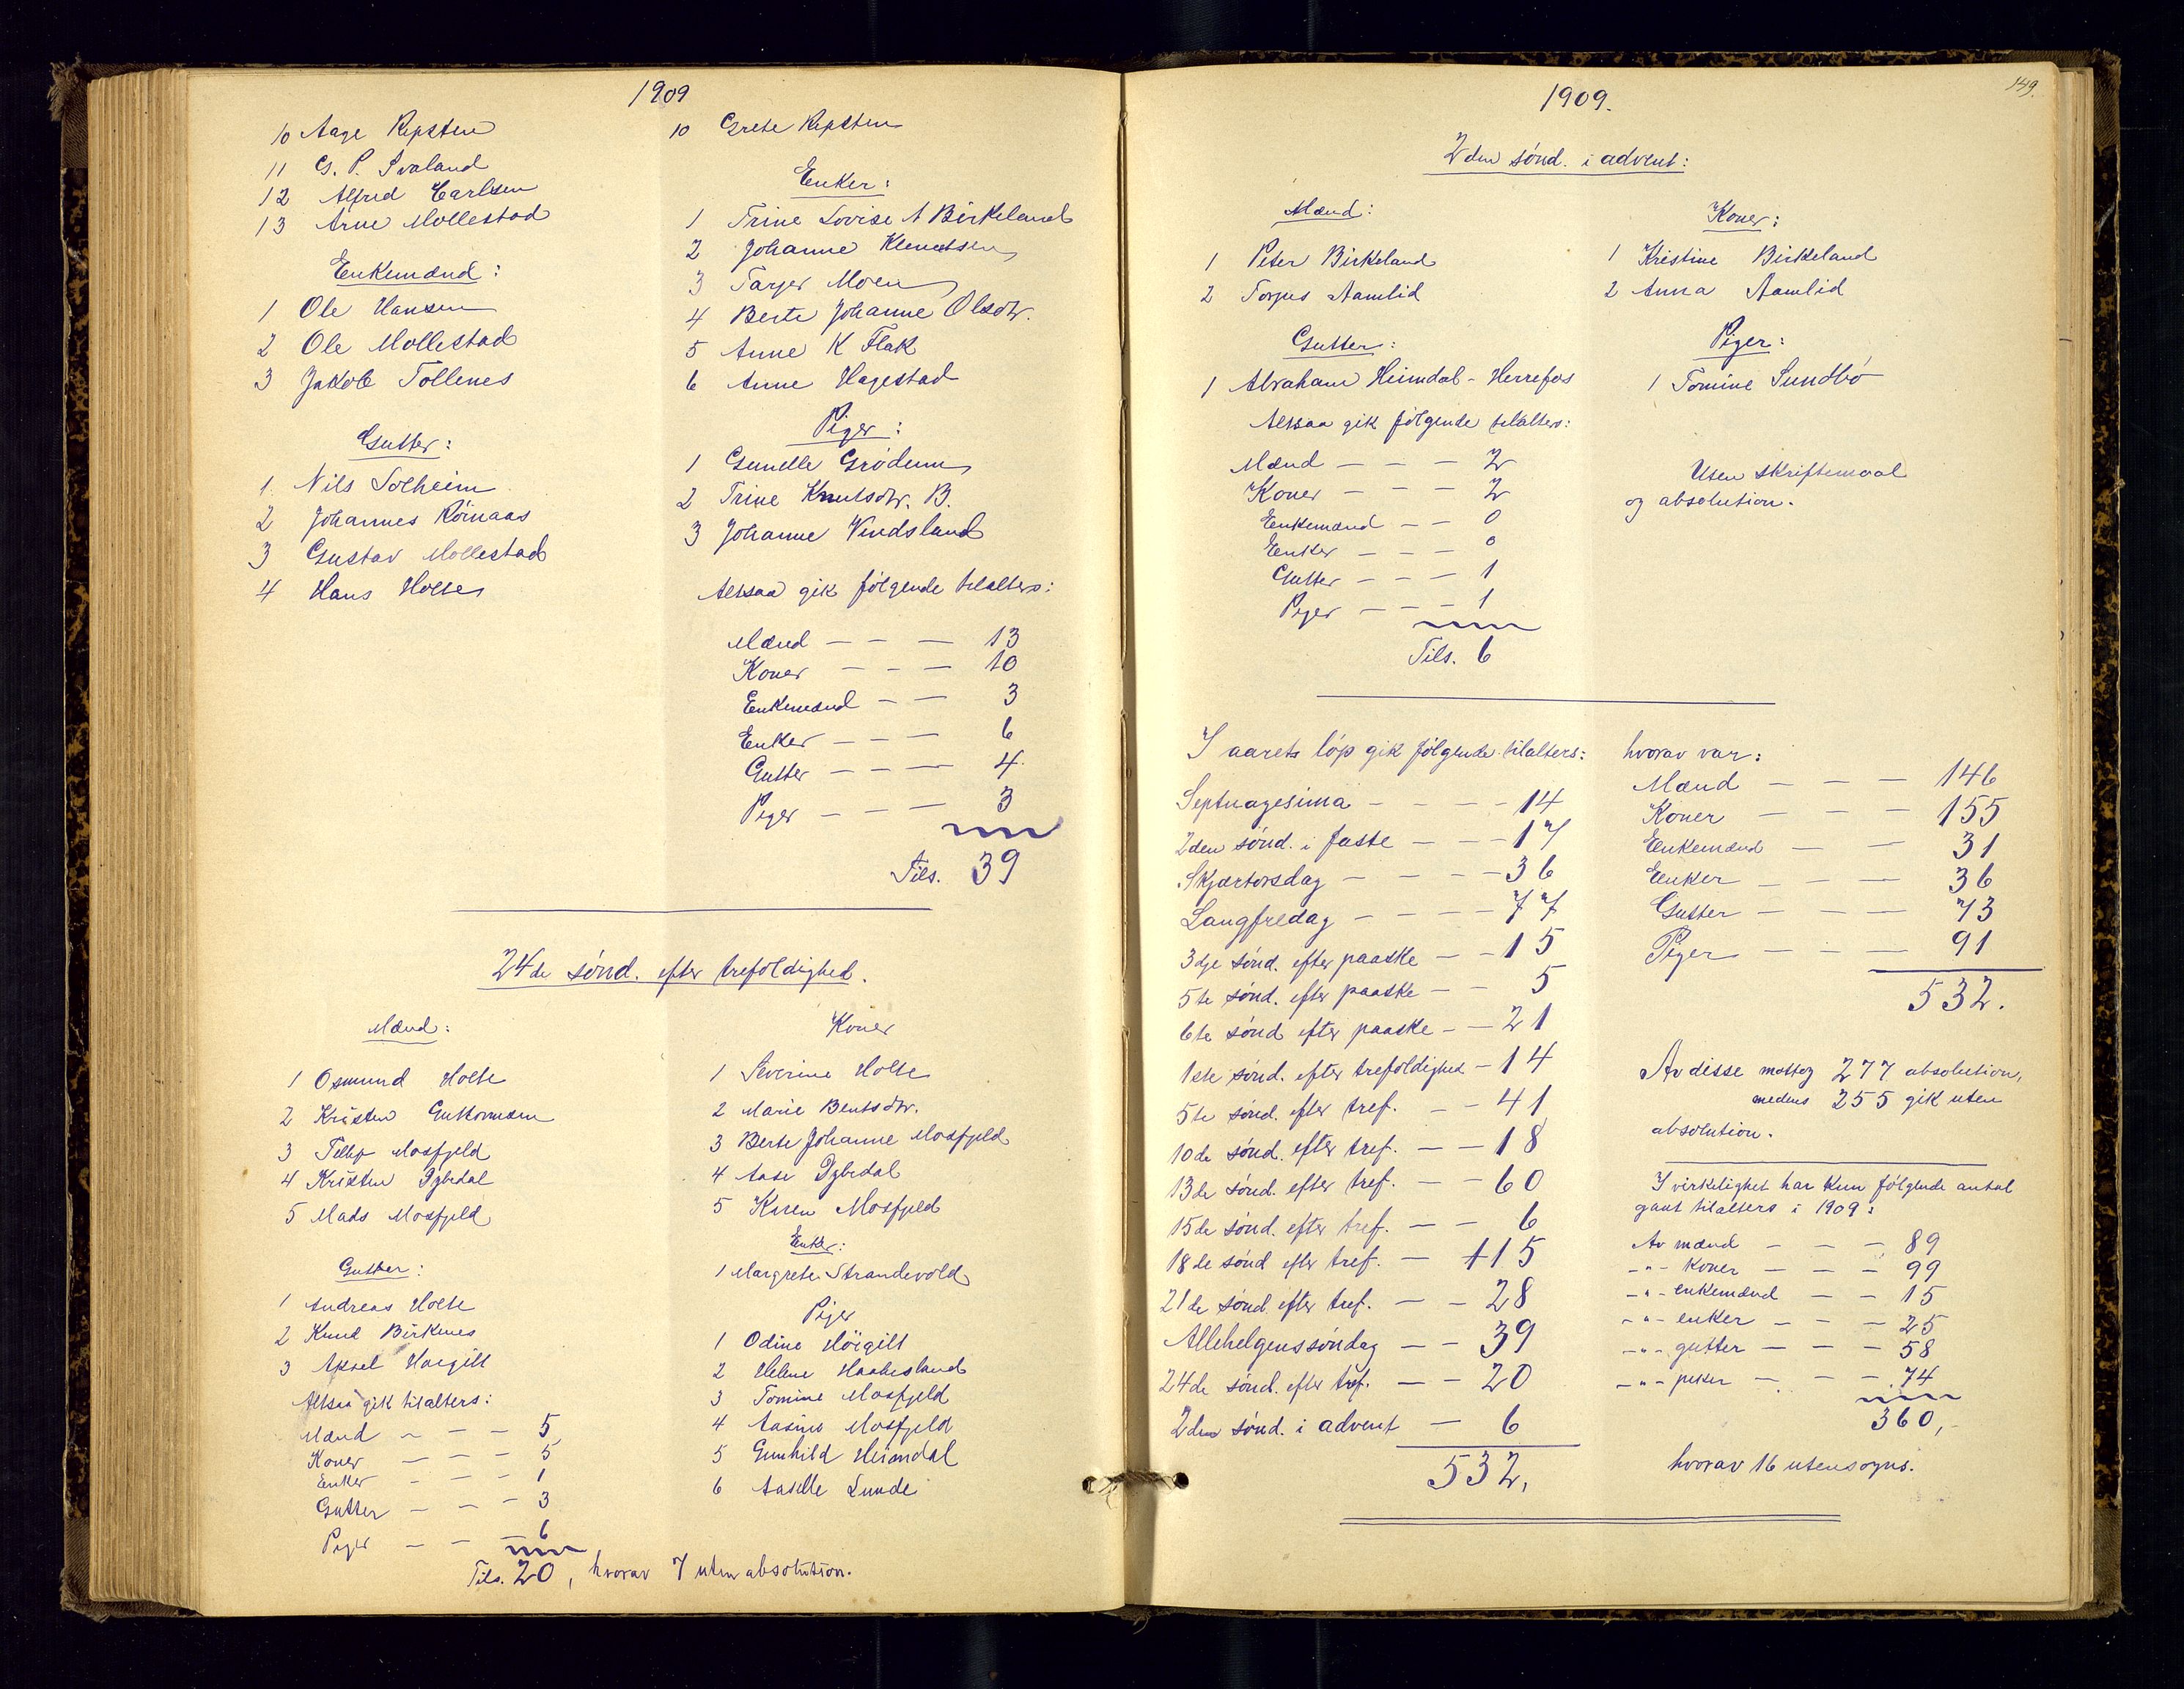 1909
10 Aage Repsten
11 G. P. Svaland
12 Alfred Carlsen
13 Arne Mollestad
Enkemænd:
1 Ole Hansen
2 Ole Mollestad
3 Jakob Tollenes
Gutter:
1. Nils Solheim
2 Johannes Röinaas
3 Gustav Mollestad
4 Hans Holte
10 Grete Repsten
Enker:
1 Trine Lovise A Birkeland
2 Johanne Klemetsen
3 Tarjer Moen
4 Berte Johanne Olsdtr.
5 Anne K Flak
6 Anne Hagestad
Piger:
1 Gunelle Grödum
2 Trine Knutsdtr. B.
3 Johanne Vindsland
Altsaa gik følgende tilalters:
Mænd — — — 13
Koner — — — 10
Enkemænd — — 3
Enker — — — 6
Gutter — — — 4
Piger — — — 3
Tils. 39
24de sönd. efter trefoldighed.
Mænd:
1 Osmund Holte
2 Kristen Guttormsen
3 Tellef Mosfjeld
4 Kristen Dybedal
5 Mads Mosfjeld
Gutter:
1 Andreas Holte
2 Knud Birkenes
3 Aksel Høigilt
Altsaa gik tilalters:
Mænd — — — 5
Koner — — — 5
Enker — — — 1
Gutter — — — 3
Piger — — — 6
Tils. 20, hvorav 7 uten absolution.
Koner
1 Severine Holte
2 Marie Bentsdtr.
3 Berte Johanne Mosfjeld
4 Aase Dybedal
5 Karen Mosfjeld
Enker:
1 Margrete Strandevold
Piger
1 Odine Höigilt
2 Helene Haabesland
3 Tomine Mosfjeld
4 Aasine Mosfjeld
5 Gunhild Heimdal
6 Aaselle Lunde
149.
1909.
2den sönd. i advent:
Mænd:
1 Peter Birkeland
2 Torjus Aamlid
Gutter:
1 Abraham Heimdal - Herrefos
Altsaa gik følgende tilalters:
Mænd — — — 2
Koner — — — 2
Enkemænd — — 0
Enker — — — 0
Gutter — — — 1
Piger — — — 1
Tils. 6
Koner:
1 Kristine Birkeland
2 Anna Aamlid
Piger:
1 Tomine Sundbö
Uten skriftemaal
og absolution.
I aarets löp gik følgende tilalters:
Septuagesima — — — — 14
2den sönd. i faste — — — 17
Skjærtorsdag — — — — 36
Langfredag — — — — 77
3dje sönd. efter paaske — — 15
5te sönd. efter paaske — — 5
6te sönd efter paaske — — 21
1ste sönd. efter trefoldighed — 14
5te sönd. efter tref. — — 41
10de sönd. efter tref. — — 18
13de sönd. efter tref. — — 60
15de sönd. efter tref. — — 6
18de sönd efter tref. — 115
21de sönd efter tref. — — 28
Allehelgenssöndag — — 39
24de sönd. efter tref. — — 20
2den sönd. i advent — 6
532.
hvorav var:
Mænd — — — 146
Koner — — — 155
Enkemænd — — 31
Enker — — — 36
Gutter — — — 73
Piger — — — 91
532.
Av disse mottog 277 absolution,
medens 255 gik uten
absolution.
I virkelighet har kun følgende antal
gaat tilalters i 1909:
Av mænd — — — 89
-"- koner — — — 99
-"- enkemænd — — 15
-"- enker — — — 25
-"- gutter — — — 58
-"- piker — — — 74
360,-
hvorav 16 utensogns.